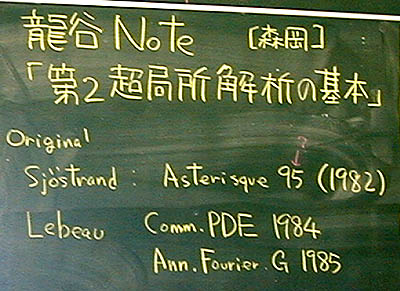 龍谷 Note [森岡]
「第2超局所解析の基本」
Original
?
Sjöstrand : Asterisque 95 (1982)
Lebeau Comm. PDE 1984
Ann. Fourier. G 1985